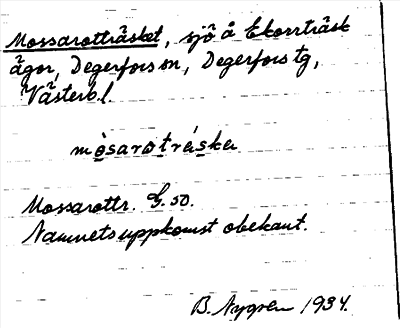 Mossarotträsket, sjö å Ekorrträsk
ägor, Degerfors sn, Degerfors tg,
Västerb.l.
mòsarotrǻska
Mossarottr. G. 50.
Namnets uppkomst obekant.
B. Nygren 1934.